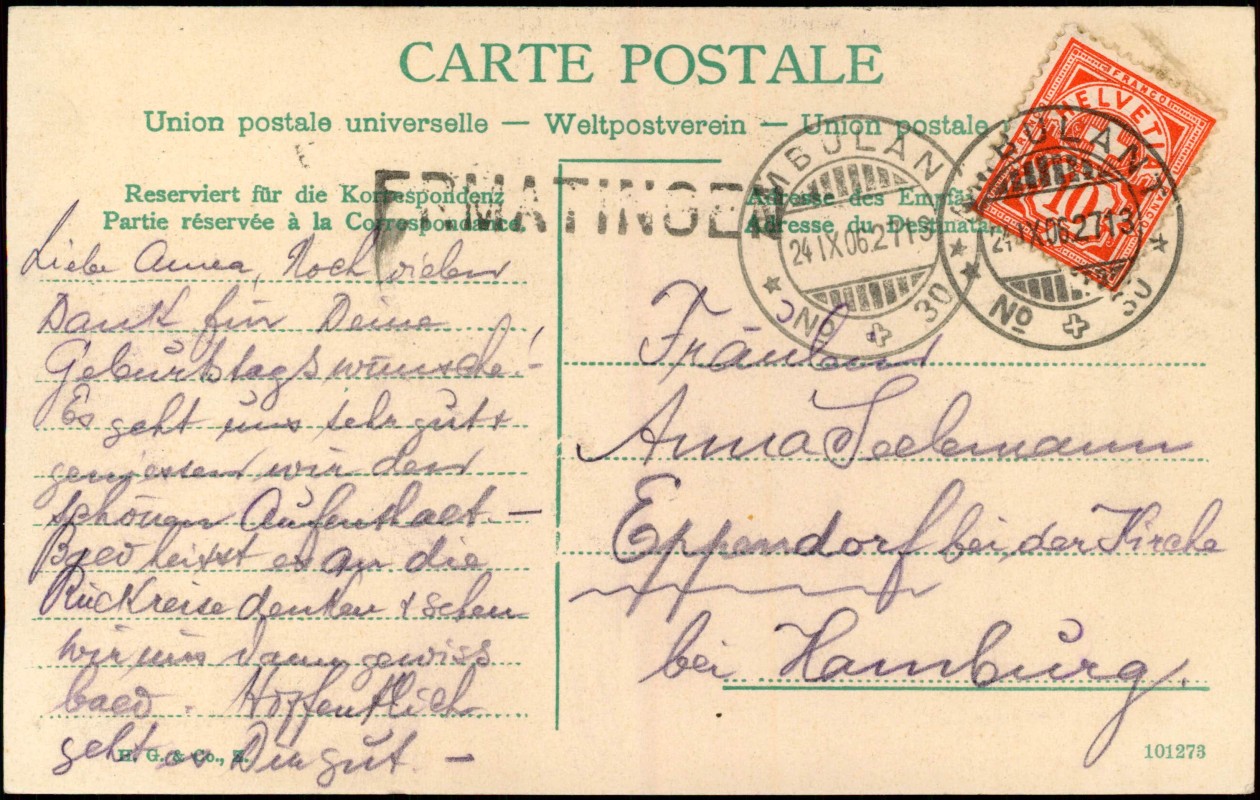 CARTE POSTALE
Union postale universelle — Weltpostverein — Union postale
Reserviert für die Korrespondenz
Partie réservée à la Correspondance.
ERMATINGEN
Adresse des Empfä
Adresse du Destinata
AMBULANT
24 IX 06. 27 13
No 30
AMBULANT
24 IX 06. 27 13
No 30
FRANCO
HELVETIA
10
Liebe Anna, Noch vielen
Dank für Deine
Geburtstagswünsche! -
Es geht uns sehr gut +
geniessen wir den
schönen Aufenthalt. —
Bald heisst es an die
Rückreise denken + sehen
wir uns dann gewiss
bald. Hoffentlich
geht es Dir gut. —
Fräulein
Anna Seelemann
Eppendorf bei der Kirche
bei Hamburg.
H. G. & Co., Z.
101273